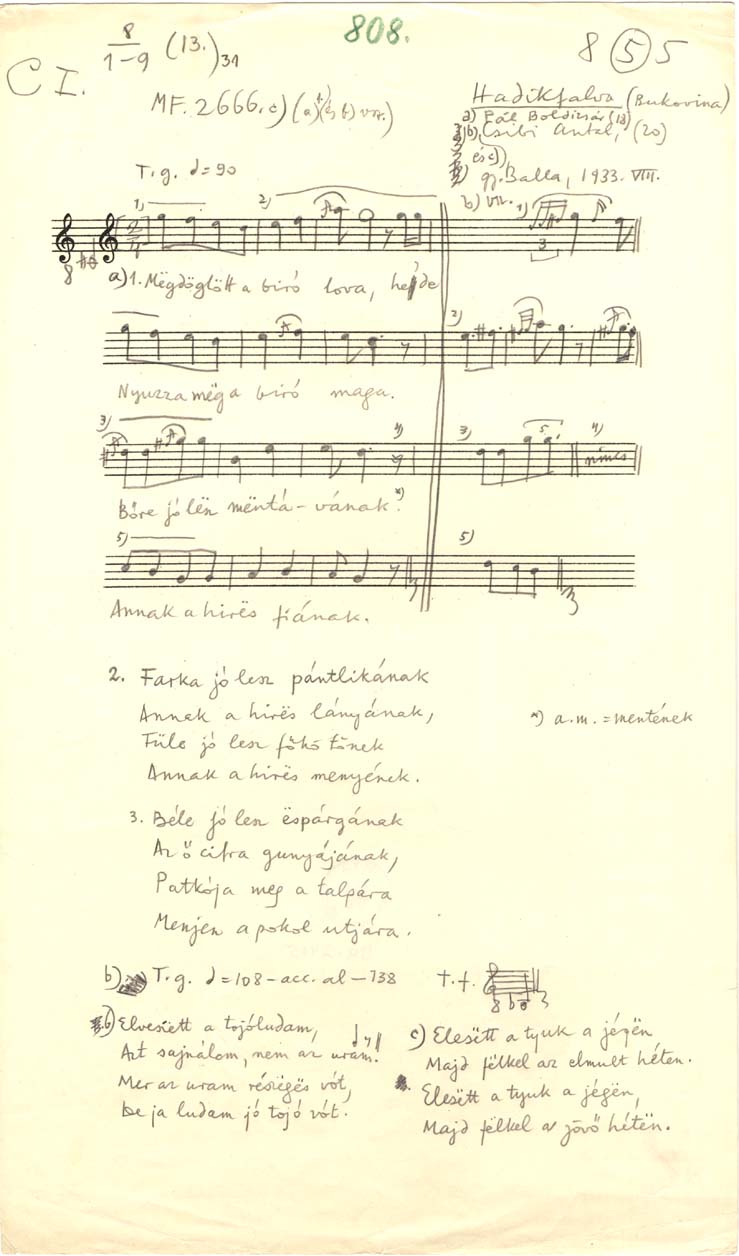 808.
8/1-9 (13.)31
8 5 5
C I.
MF. 2666. c) (a)
Hadikfalva (Bukovina)
a) Pál Boldizsár (13)
b) Csibi Antal, (20)
és c)
gy. Balla, 1933. VIII.
T. g. = 90
b) VII.
1) 2) 1)
3
8
a) 1. Mëgdöglött a biró lova, hejde
2)
Nyuzza mëg a biró maga.
3) 4) 3) 5. 4)
nincs
Bőre jó lën mëntá-vának *)
5) 5)
Annak a hirës fiának.
2. Farka jó lesz pántlikának
Annak a hirës lányának,
*) a.m. = mentének
Füle jó lesz főkötőnek
Annak a hirës menyének.
3. Béle jó lesz ëspárgának
Az ő cifra gunyájának,
Patkója meg a talpára
Menjen a pokol utjára.
b) T. g. = 108 - acc. al - 138
t. f.
8
b) Elveszëtt a tojóludam,
Azt sajnálom, nem az uram.
Mer az uram részëgës vót,
De ja ludam jó tojó vót.
c) Elesëtt a tyuk a jégën
Majd fëlkel az elmult héten.
Elesëtt a tyuk a jégën,
Majd fëlkel a jövő hétën.